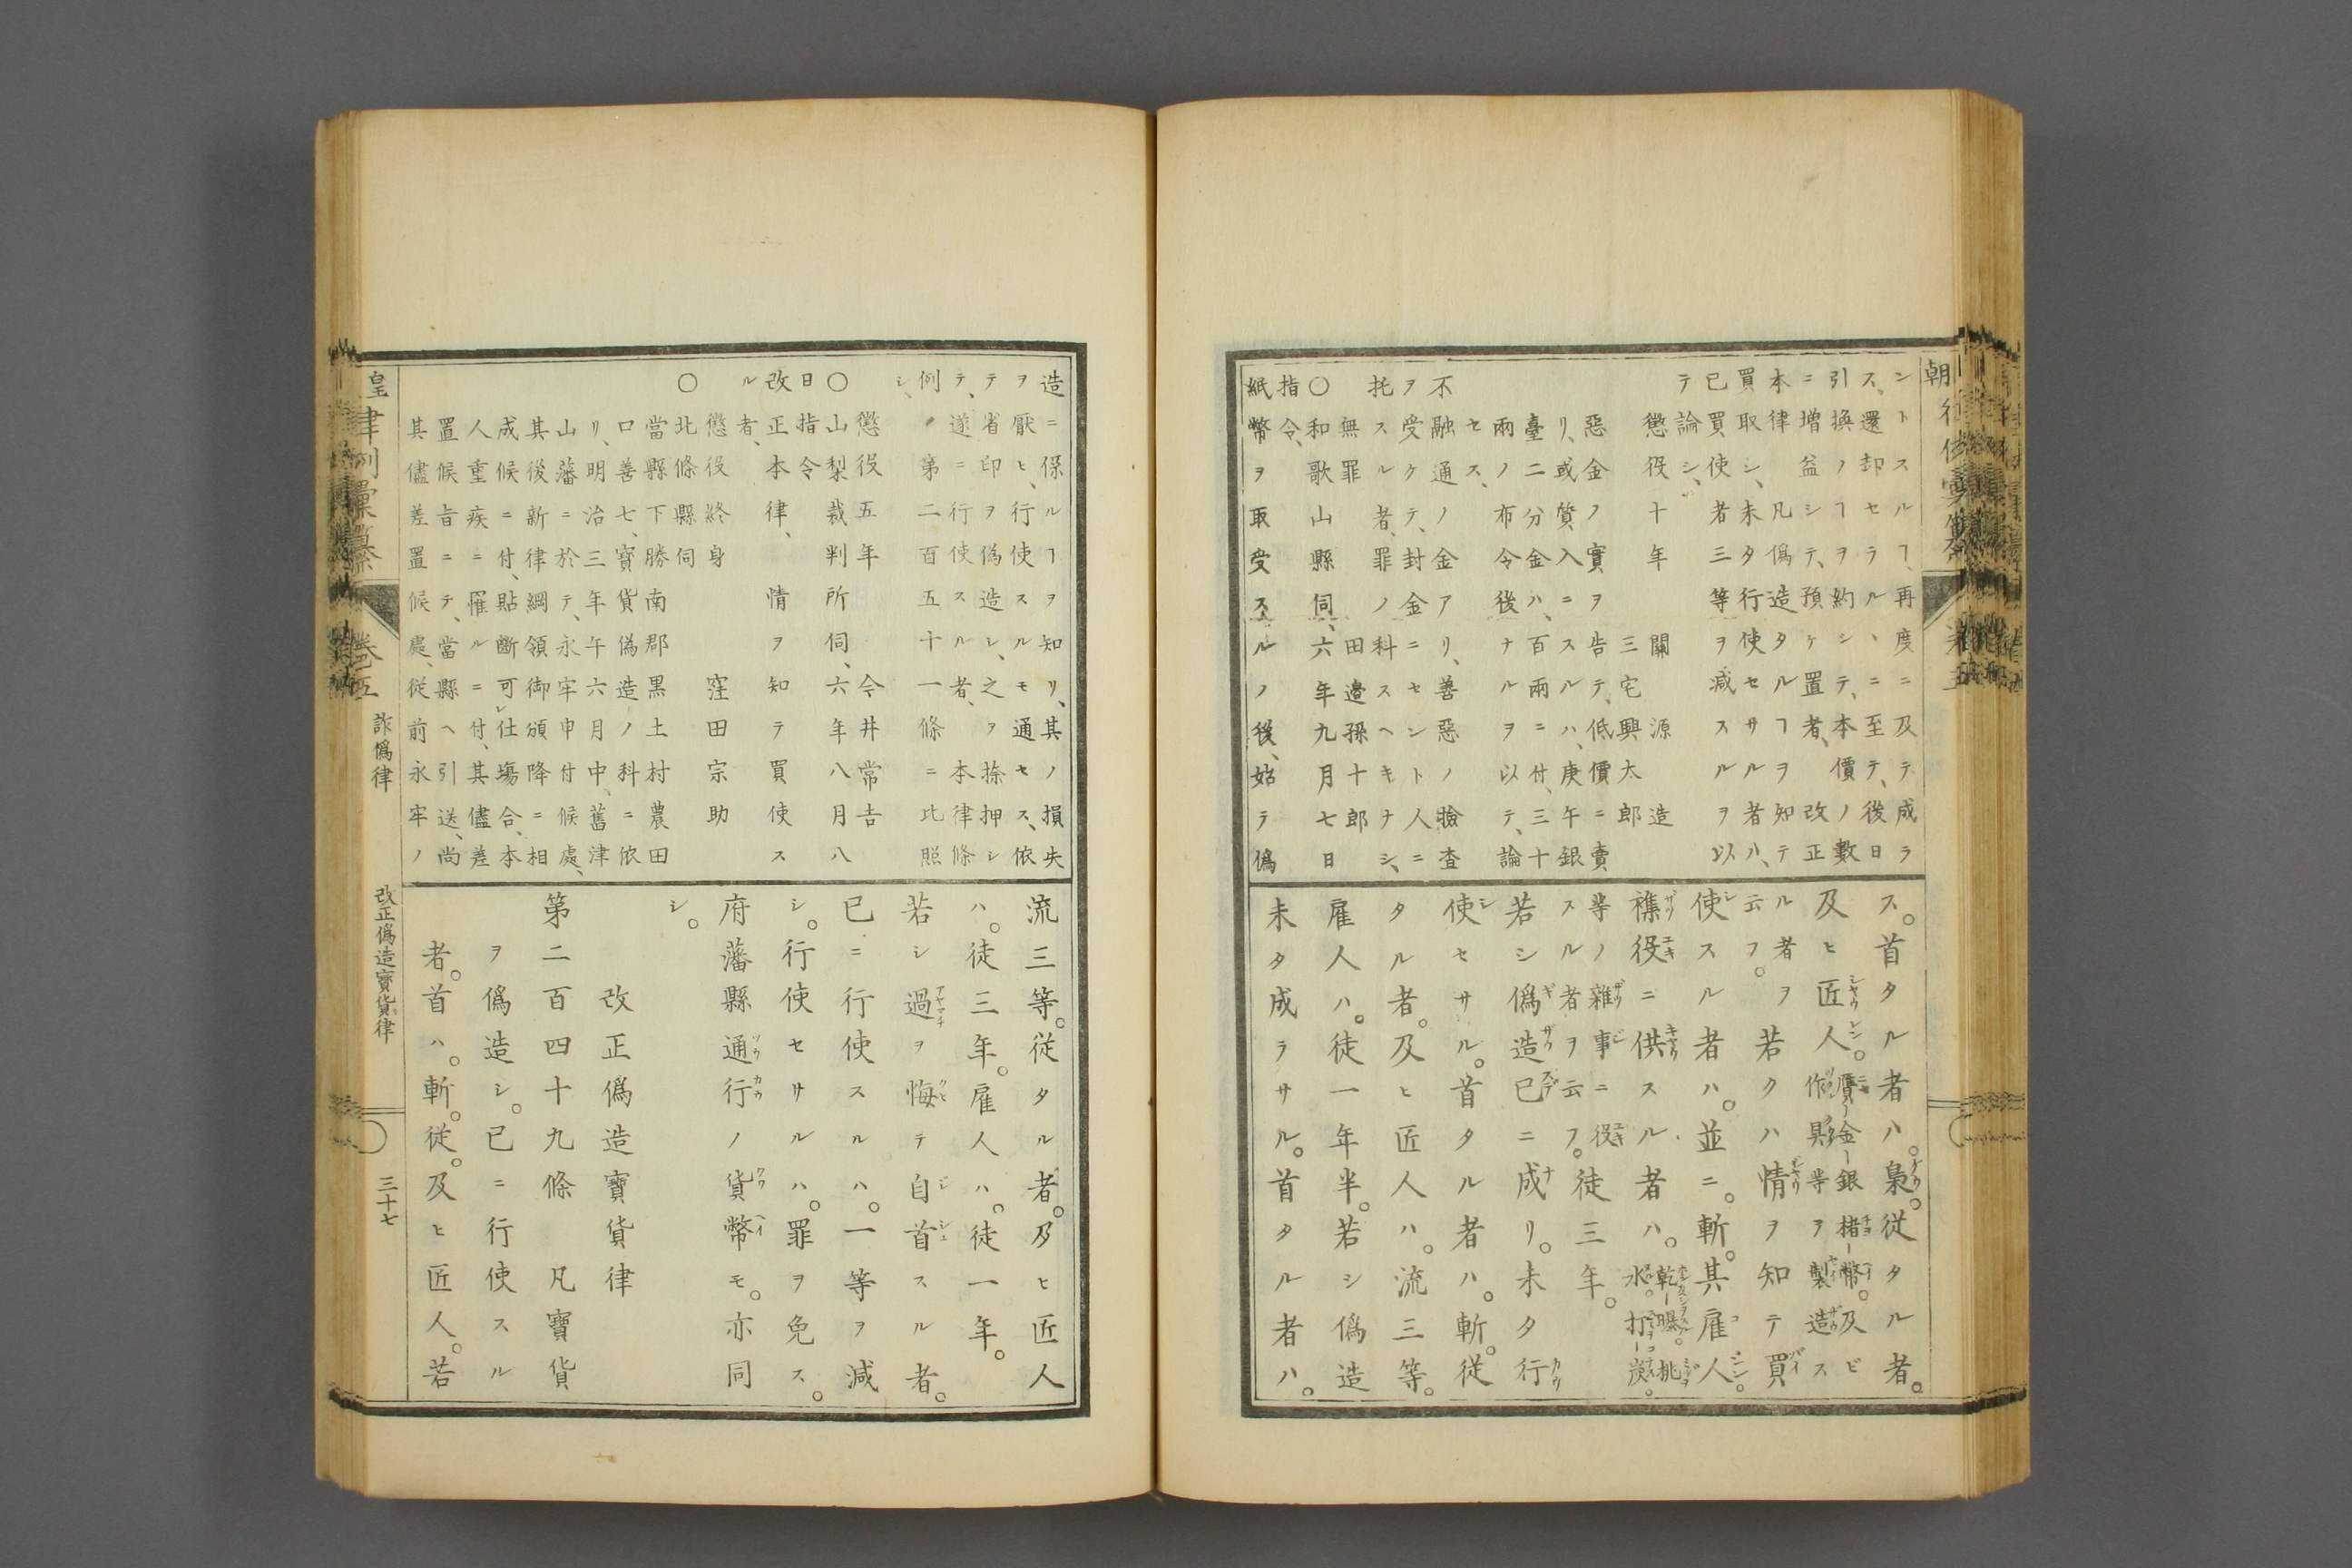 朝行律實算
卷五
ントスルヿ、再度ニ及テ成ラ
ス、還却セラルヽニ至テ、後日
引換ノヿヲ約シテ、本價ノ數
ニ増益シテ、預ケ置者、改正
本律、凡僞造タルヿヲ知テ
買取シ、未タ行使セサル者ハ、
已買使者三等ヲ減スルヲ以
テ論シ、
懲役十年 關源造
三宅興太郎
惡金ノ實ヲ告テ、低價ニ賣
リ、或質入ニスルハ、庚午銀
臺二分金ハ、百兩ニ付、三十
兩ノ布令後ナルヲ以テ、論
セス、
不融通ノ金アリ、善惡ノ撿査
ヲ受クテ、封金ニセント人ニ
托スル者、罪ノ科スヘキナシ、
無罪 田邉孫十郎
〇和歌山縣伺、六年九月七日
指令、
紙幣ヲ取受スルノ後、始テ僞
ス。首タル者ハ。梟。從タル者。
及ヒ匠人。贋金銀楮幣。及ビ作具等ヲ製造ス
ル者ヲ云フ。若クハ情ヲ知テ買
使スル者ハ。並ニ。斬。其雇人。
襍役ニ供スル者ハ。乾曝。挑水。打炭。
等ノ雜事ニ役スル者ヲ云フ。徒三年。
若シ僞造已ニ成リ。未タ行
使セサル。首タル者ハ。斬。從
タル者。及ヒ匠人ハ。流三等。
雇人ハ。徒一年半。若シ僞造
未タ成ラサル。首タル者ハ。
造ニ係ルヿヲ知リ、其ノ損失
ヲ厭ヒ、行使スルモ通セス、依
テ省印ヲ僞造シ、之ヲ捺押シ
テ、遂ニ行使スル者、本律條
例、第二百五十一條ニ比照
シ、
懲役五年 今井常吉
〇山梨裁判所伺、六年八月八
日指令
改正本律、情ヲ知テ買使ス
ル者、
懲役終身 窪田宗助
〇北條縣伺
當縣下勝南郡黒土村農田
口善七、寳貨僞造ノ科ニ依
リ、明治三年午六月中、舊津
山藩ニ於テ、永牢申付候處、
其後新律綱領御頒降ニ相
成候ニ付、貼斷可レ仕塲合、本
人重疾ニ罹ルニ付、其儘差
置候旨ニテ、當縣ヘ引送、尚
其儘差置候處、從前永牢ノ
流三等。從タル者。及ヒ匠人
ハ。徒三年。雇人ハ。徒一年。
若シ過ヲ悔テ自首スル者。
已ニ行使スルハ。一等ヲ減
シ。行使セサルハ。罪ヲ免ス。
府藩縣通行ノ貨幣モ。亦同
シ。
改正僞造寶貨律
第二百四十九條 凡寶貨
ヲ僞造シ。已ニ行使スル
者。首ハ。斬。從。及ヒ匠人。若
皇律例彙纂
卷五
詐僞律
改正僞造寶貨律
三十七